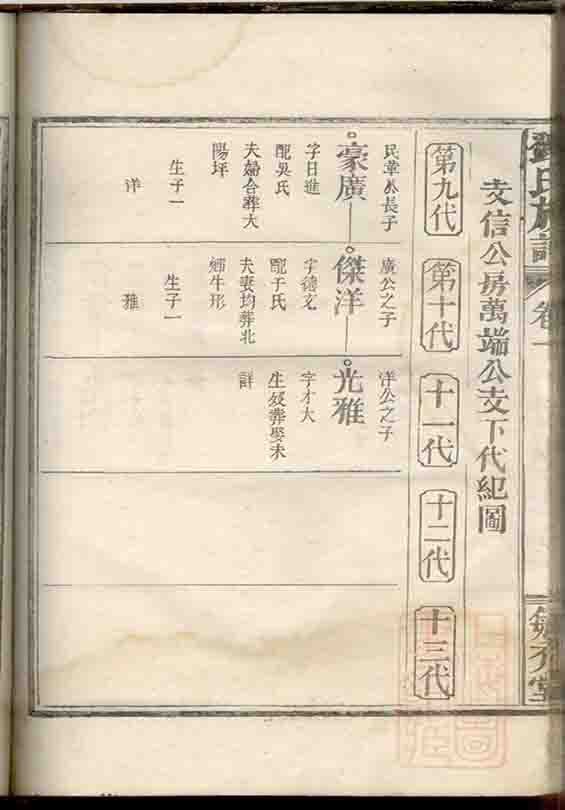 氏族譜
卷一
文信公房萬端公支下代紀圖
第九代
第十代
十一代
十二代
十三代
民章公長子
豪廣
字日進
配吳氏
夫婦合葬大
陽坪
生子一
洋
廣公之子
傑洋
字德玄
配于氏
夫妻均葬北
螄牛形
生子一
雅
洋公之子
光雅
字才大
生歿葬娶未
詳